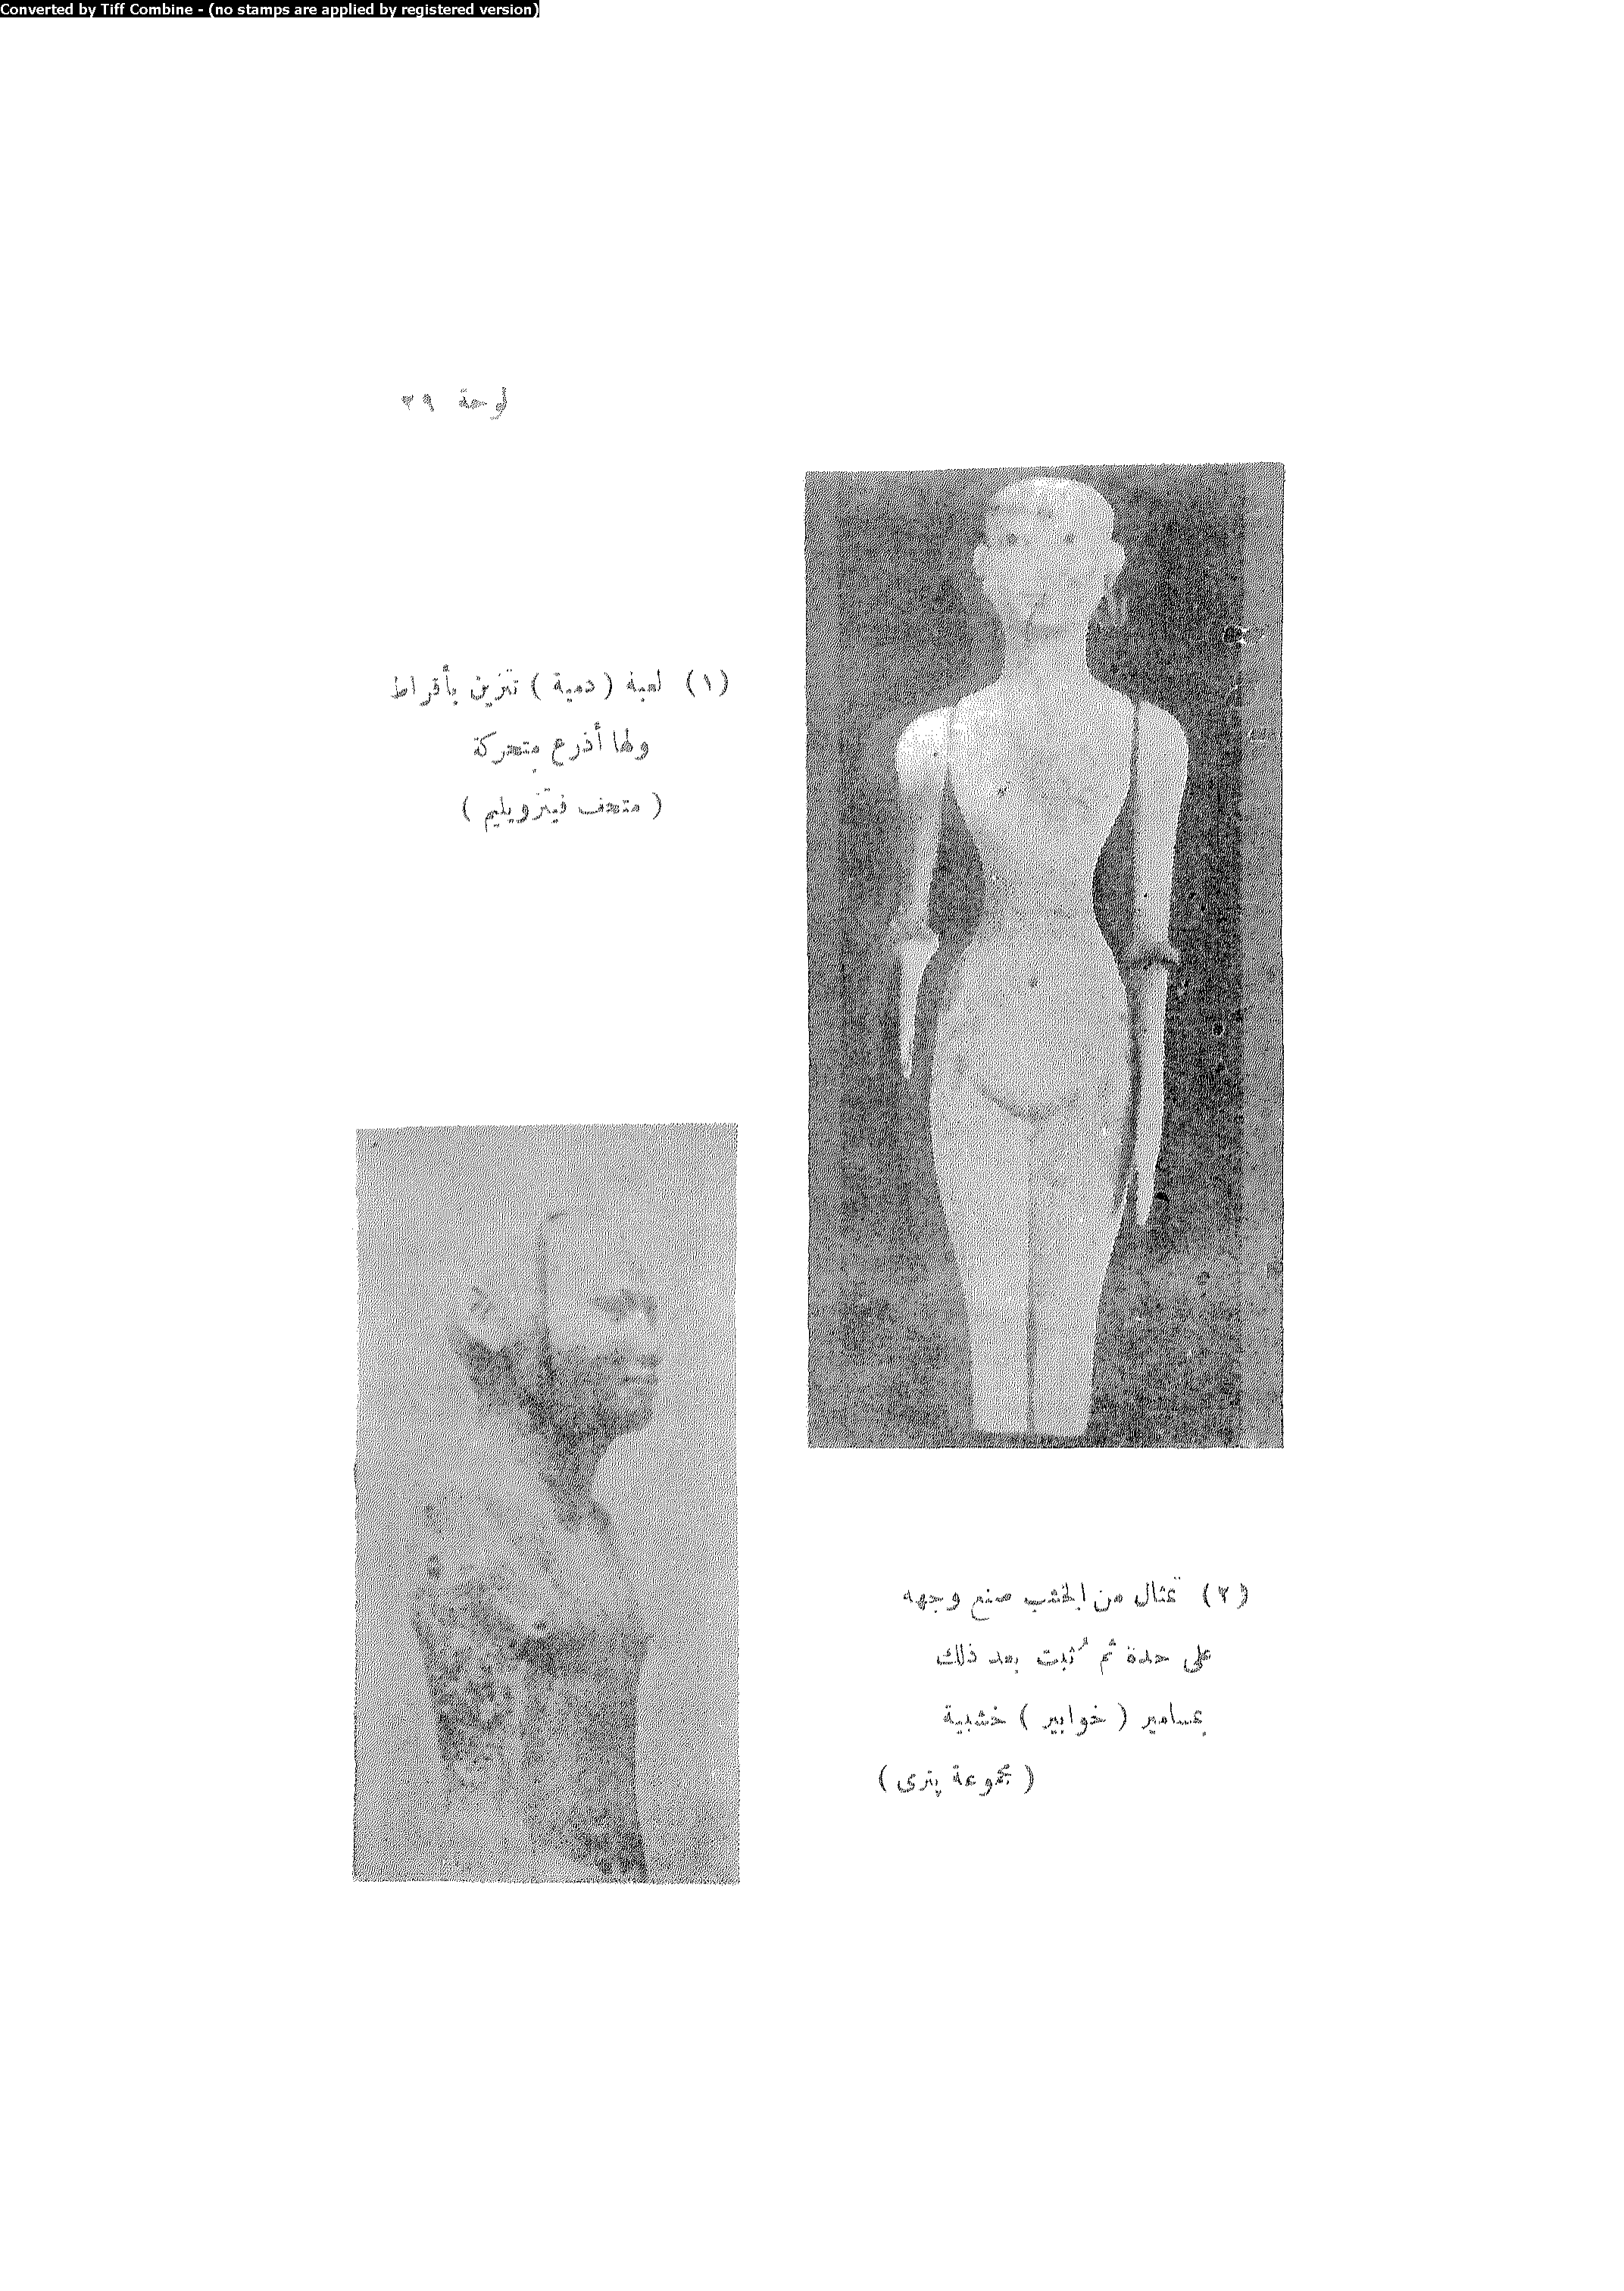 Converted by Tiff Combine - (no stamps are applied by registered version)
لوحة ٣٩
(١) لعبة (دمية) تتزين بأقراط
ولها أذرع متحركة
(متحف فيتزويليم)
(٢) تمثال من الخشب صنع وجهه
على حدة ثم ُثبت بعد ذلك
بمسامير (خوابير) خشبية
(مجموعة پترى)